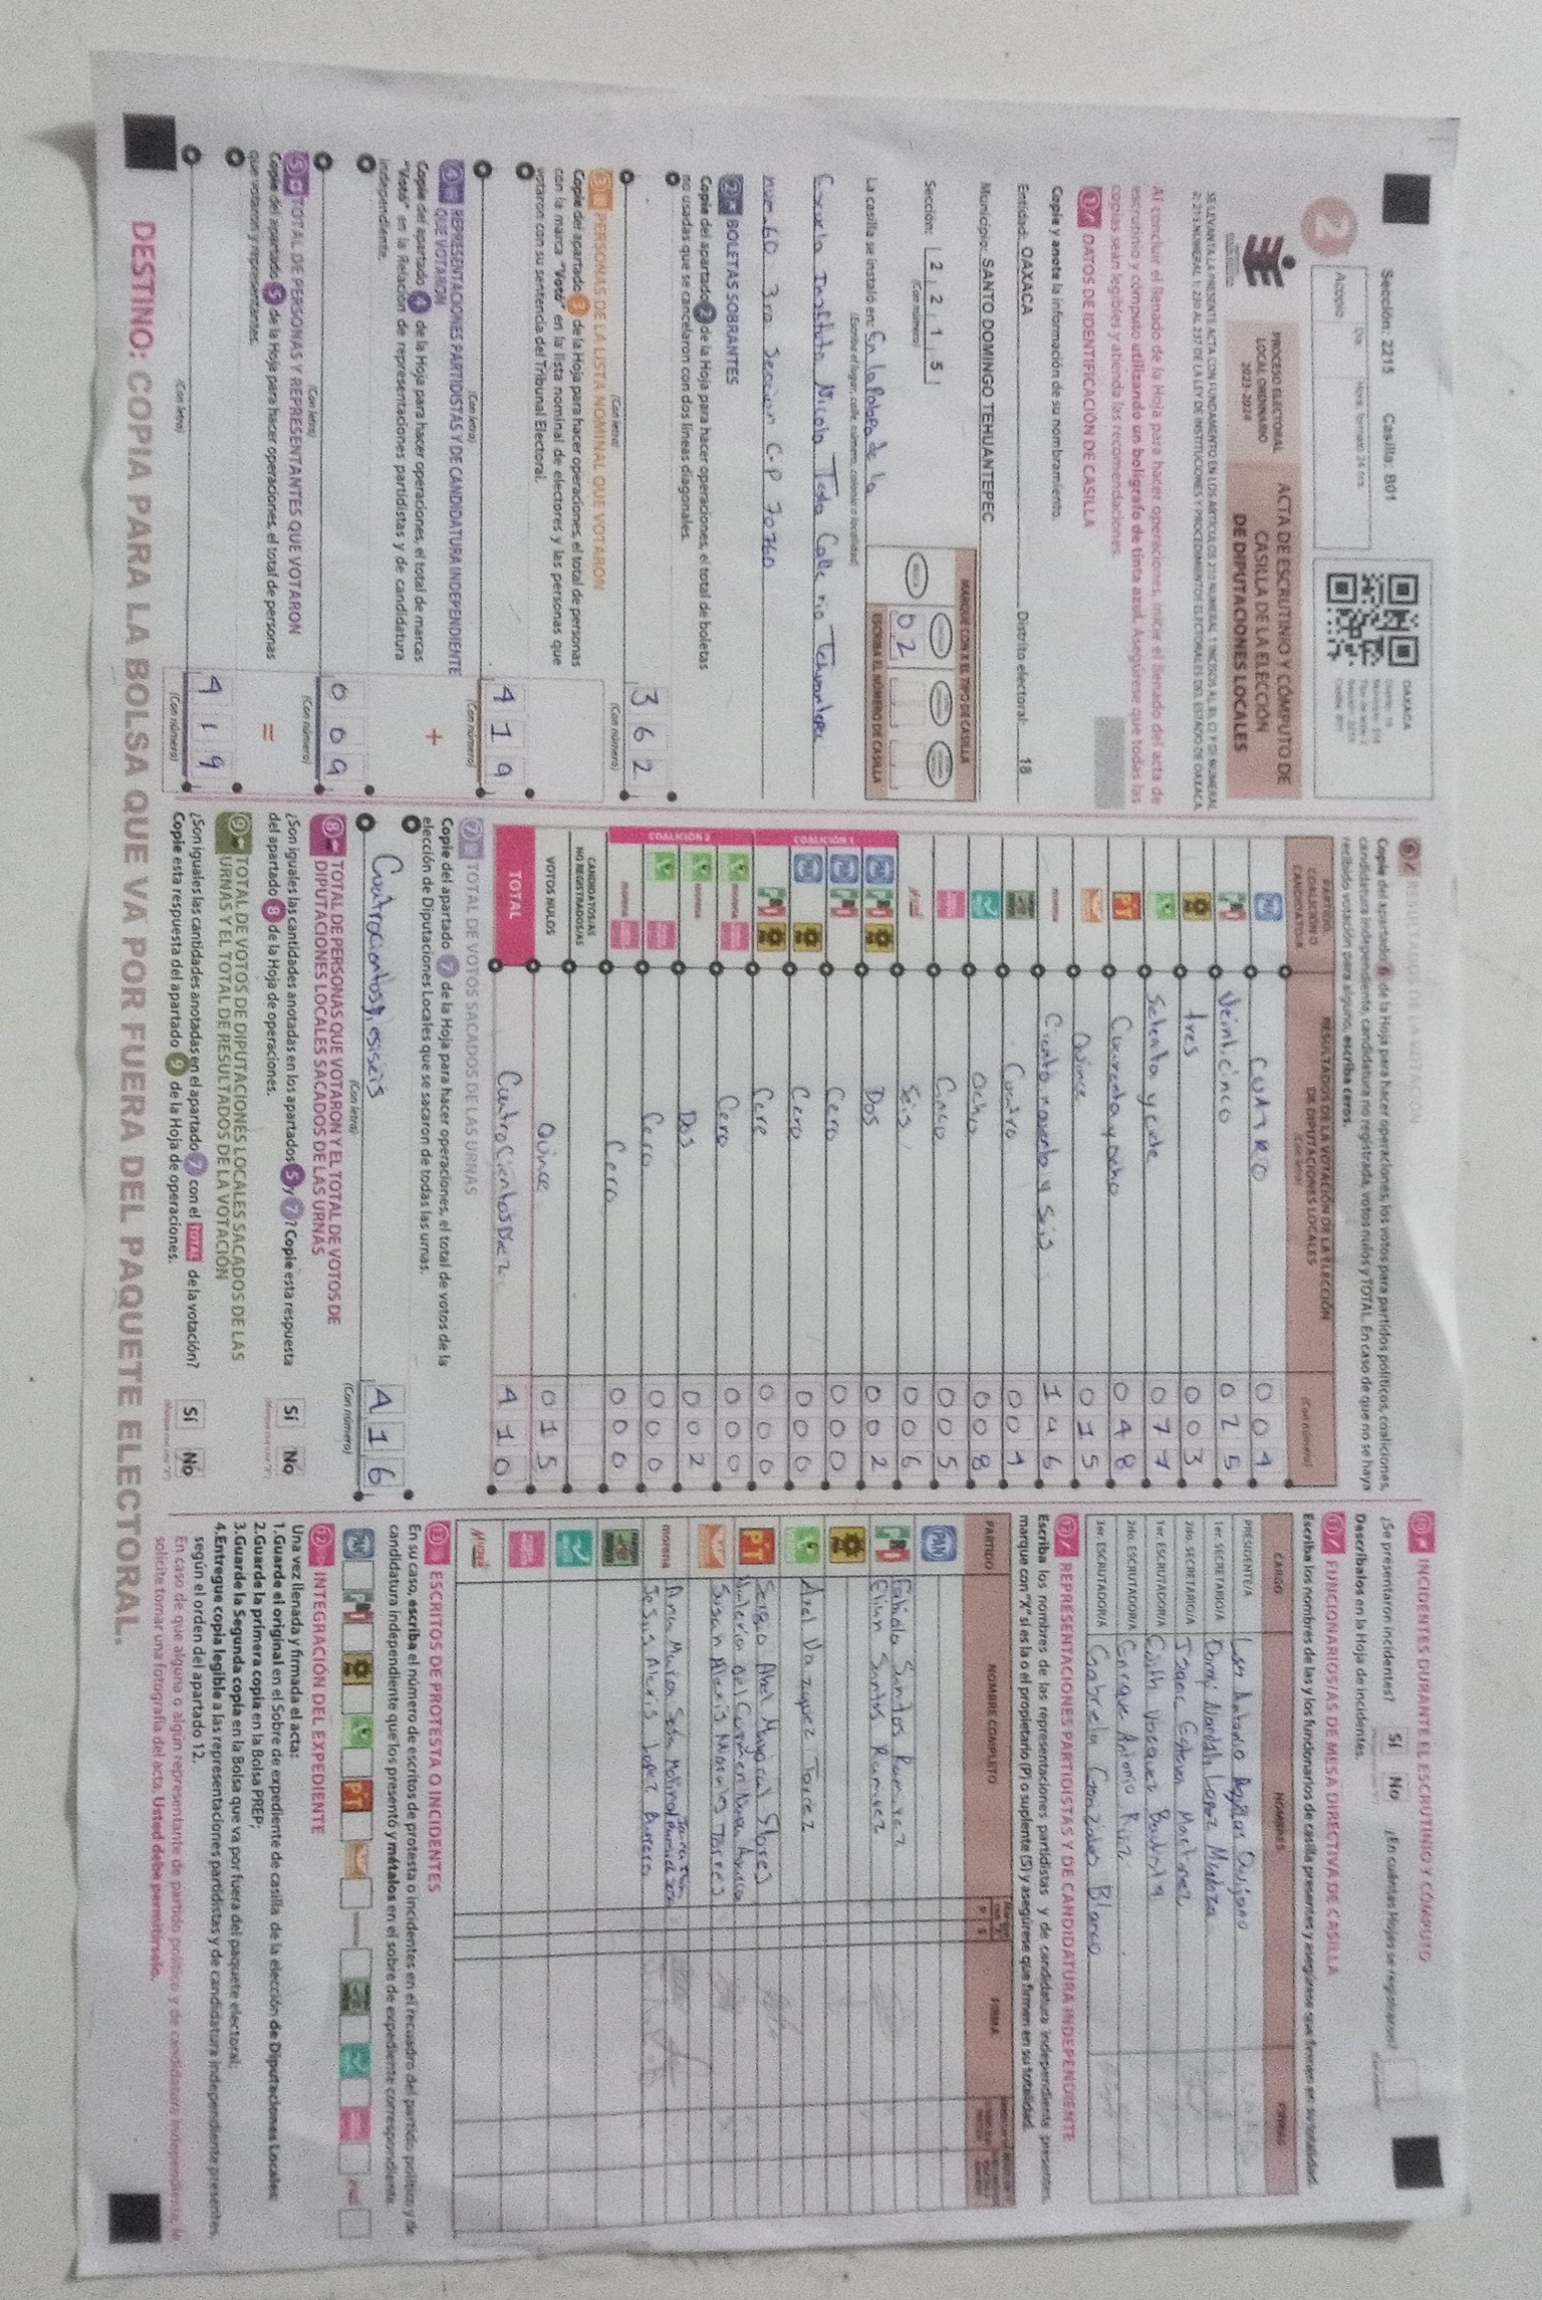 Sección: 2215 Casilla: B01
Día Hora: formato 24 hrs
Acopio
2
OAXACA
PROCESO ELECTORAL
LOCAL ORDINARIO
2023-2024
ACTA DE ESCRUTINIO Y CÓMPUTO DE
CASILLA DE LA ELECCIÓN
DE DIPUTACIONES LOCALES
Al concluir el llenado de la Hoja para hacer operaciones, inicie el llenado del acta de
escrutinio y cómputo utilizando un bolígrafo de tinta azul. Asegúrese que todas las
copias sean legibles y atienda las recomendaciones.
1 DATOS DE IDENTIFICACIÓN DE CASILLA
Copie y anote la información de su nombramiento.
Entidad: OAXACA Distrito electoral: 18
Municipio: SANTO DOMINGO TEHUANTEPEC
Sección: 2 2 1 5
(Con número)
MARQUE CON X EL TIPO DE CASILLA
0 2
ESCRIBA EL NÚMERO DE CASILLA
La casilla se instaló en:
(Escriba el lugar, calle, número, colonia o localidad)
3ra Sección C.P 70760
2 BOLETAS SOBRANTES
Copie del apartado 2 de la Hoja para hacer operaciones, el total de boletas
no usadas que se cancelaron con dos líneas diagonales.
3 6 2
(Con letra) (Con número)
3 PERSONAS DE LA LISTA NOMINAL QUE VOTARON
Copie del apartado 3 de la Hoja para hacer operaciones, el total de personas
con la marca "Votó" en la lista nominal de electores y las personas que
votaron con su sentencia del Tribunal Electoral.
4 1 9
(Con letra) (Con número)
4 REPRESENTACIONES PARTIDISTAS Y DE CANDIDATURA INDEPENDIENTE
QUE VOTARON
+
Copie del apartado 4 de la Hoja para hacer operaciones, el total de marcas
"Votó" en la Relación de representaciones partidistas y de candidatura
independiente.
0 0 9
(Con letra) (Con número)
5 TOTAL DE PERSONAS Y REPRESENTANTES QUE VOTARON
=
Copie del apartado 5 de la Hoja para hacer operaciones, el total de personas
que votaron y representantes.
4 1 9
(Con letra) (Con número)
6 RESULTADOS DE LA VOTACIÓN
Copie del apartado 6 de la Hoja para hacer operaciones, los votos para partidos políticos, coaliciones,
candidatura independiente, candidatura no registrada, votos nulos y TOTAL. En caso de que no se haya
recibido votación para alguno, escriba ceros.
PARTIDO, COALICIÓN O CANDIDATO/A
RESULTADOS DE LA VOTACIÓN DE LA ELECCIÓN
DE DIPUTACIONES LOCALES
(Con letra) (Con número)
PAN CUATRO 0 0 4
PRI Veinticinco 0 2 5
tres 0 0 3
Setenta y siete 0 7 7
PT Cuarenta y ocho 0 4 8
Quince 0 1 5
morena Ciento cuarenta y seis 1 4 6
Cuatro 0 0 4
Ocho 0 0 8
Cinco 0 0 5
Seis 0 0 6
COALICIÓN 1
Dos 0 0 2
Cero 0 0 0
Cero 0 0 0
Cero 0 0 0
COALICIÓN 2
Cero 0 0 0
Dos 0 0 2
Cero 0 0 0
Cero 0 0 0
CANDIDATOS/AS
NO REGISTRADOS/AS
VOTOS NULOS Quince 0 1 5
TOTAL 4 1 0
7 TOTAL DE VOTOS SACADOS DE LAS URNAS
Copie del apartado 7 de la Hoja para hacer operaciones, el total de votos de la
elección de Diputaciones Locales que se sacaron de todas las urnas.
4 1 6
(Con letra) (Con número)
8 TOTAL DE PERSONAS QUE VOTARON Y EL TOTAL DE VOTOS DE
DIPUTACIONES LOCALES SACADOS DE LAS URNAS
¿Son iguales las cantidades anotadas en los apartados 5 y 7? Copie esta respuesta
del apartado 8 de la Hoja de operaciones.
Sí No
9 TOTAL DE VOTOS DE DIPUTACIONES LOCALES SACADOS DE LAS
URNAS Y EL TOTAL DE RESULTADOS DE LA VOTACIÓN
¿Son iguales las cantidades anotadas en el apartado 7 con el TOTAL de la votación?
Copie esta respuesta del apartado 9 de la Hoja de operaciones.
Sí No
10 INCIDENTES DURANTE EL ESCRUTINIO Y CÓMPUTO
¿Se presentaron incidentes? Sí No ¿En cuántas Hojas se registraron?
Descríbalos en la Hoja de incidentes.
11 FUNCIONARIOS/AS DE MESA DIRECTIVA DE CASILLA
Escriba los nombres de las y los funcionarios de casilla presentes y asegúrese que firmen en su totalidad.
CARGO NOMBRES FIRMAS
PRESIDENTE/A
1er. SECRETARIO/A
2do. SECRETARIO/A
1er. ESCRUTADOR/A
2do. ESCRUTADOR/A Enrique Antonio Ruiz
3er. ESCRUTADOR/A Gabriela Gonzales Blanco
12 REPRESENTACIONES PARTIDISTAS Y DE CANDIDATURA INDEPENDIENTE
Escriba los nombres de las representaciones partidistas y de candidatura independiente presentes,
marque con "X" si es la o el propietario (P) o suplente (S) y asegúrese que firmen en su totalidad.
PARTIDO NOMBRE COMPLETO FIRMA
PAN
PRI Fabiola Santos Ramirez
Santos Ramirez
Axel Vazquez Torrez
PT
Susan Alexis Morales Torres
morena
Jesus Alexis Lopez
13 ESCRITOS DE PROTESTA O INCIDENTES
En su caso, escriba el número de escritos de protesta o incidentes en el recuadro del partido político y de
candidatura independiente que los presentó y métalos en el sobre de expediente correspondiente.
INTEGRACIÓN DEL EXPEDIENTE
Una vez llenada y firmada el acta:
1.Guarde el original en el Sobre de expediente de casilla de la elección de Diputaciones Locales;
2.Guarde la primera copia en la Bolsa PREP;
3.Guarde la Segunda copia en la Bolsa que va por fuera del paquete electoral;
4.Entregue copia legible a las representaciones partidistas y de candidatura independiente presentes,
según el orden del apartado 12.
En caso de que alguna o algún representante de partido político y de candidatura independiente, le
solicite tomar una fotografía del acta, Usted debe permitírselo.
DESTINO: COPIA PARA LA BOLSA QUE VA POR FUERA DEL PAQUETE ELECTORAL.